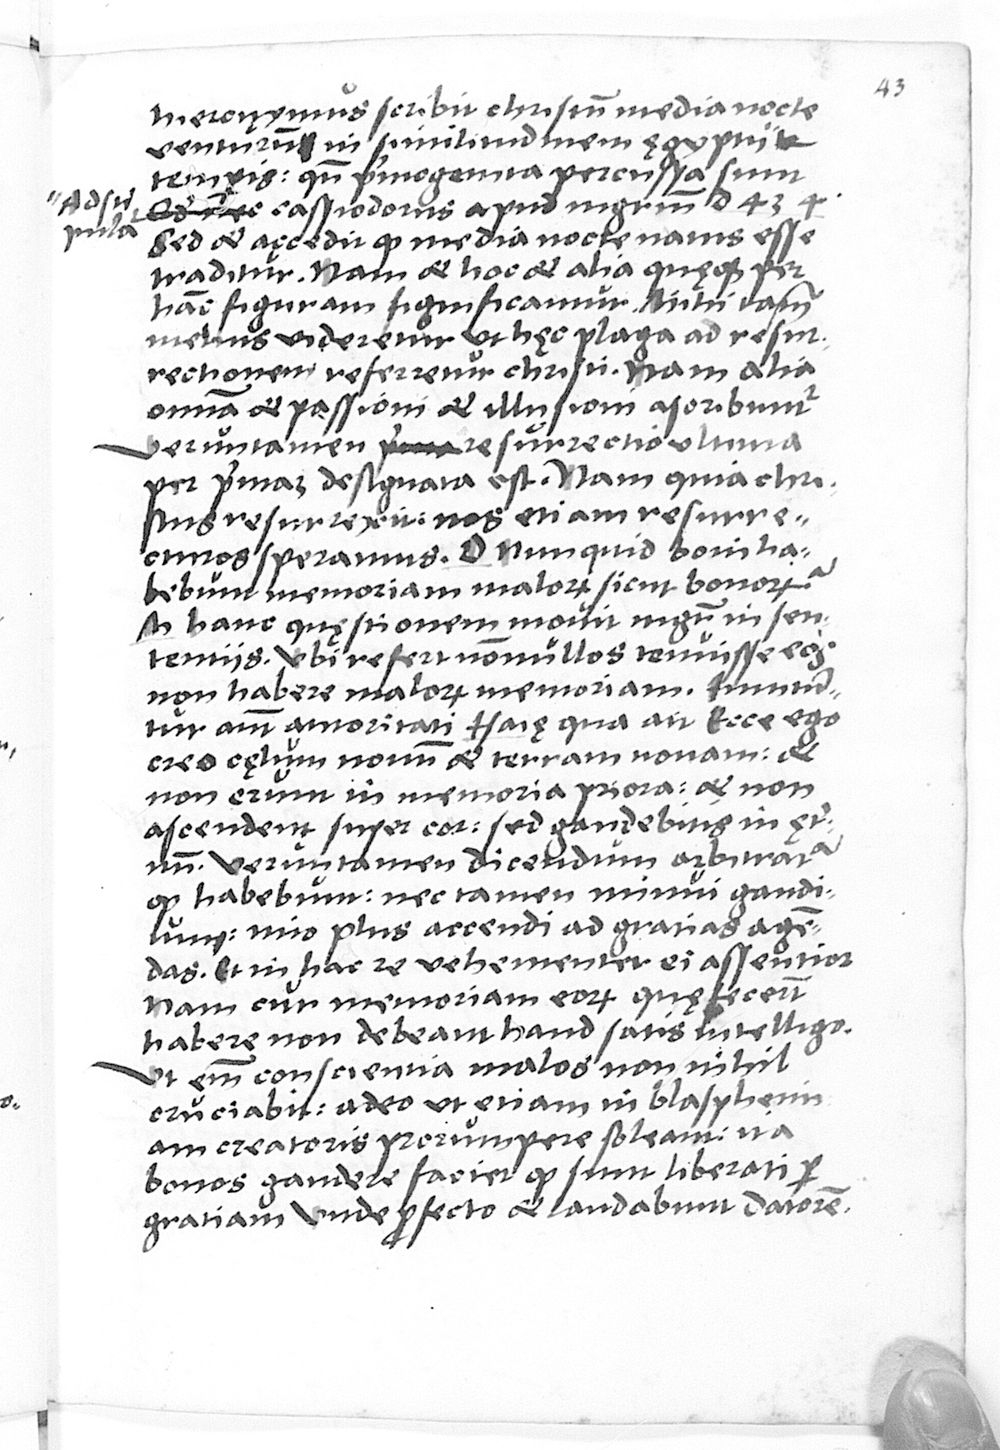 43
hieronymus scribit christū media nocte
venturū in similitudinem ęgyptii
tempis: qn̄ p̄mogenita percussa sunt
"Adsti
pula
cassiodorus apud mgrm̄ d 43 4.
Sed & accedit ꝙ media nocte natus esse
traditur. Nam & hoc & alia quęqꝫ per
hāc figuram significantur. Mihi tam̄
melius videretur vt hęc plaga ad resur-
rectionem referretur christi. Nam alia
omīa & passioni & illusioni ascribunt᷑
veruntamen resurrectio ultima
per p̄maꝫ designata est. Nam quia chri-
stus resurrexit: nos etiam resurre-
cturos speramus. D Nunquid boni ha-
bebunt memoriam malorꝝ sicut bonorꝝ?
M hanc quęstionem mouit mgr̄ in sen-
tentiis. Vbi refert nōnullos tenuisse eos
non habere malorꝝ memoriam. Innitū-
tur aūt autoritati Esaię qua ait Ecce ego
creo cęlum nouū & terram nouam: &
non erunt in memoria priora: & non
ascendent super cor: sed gaudebitis in ęt̄-
nū. Veruntamen dicendum arbitrat᷑
ꝙ habebunt: nec tamen minui gaudi-
um: imo plus accendi ad gratias agē-
das. Et in hac re vehementer ei assentior
Nam cur memoriam eorꝝ quę fecerūt
habere non debeant haud satis intelligo.
Vt em̄ conscientia malos non nihil
cruciabit: adeo vt etiam in blasphemi
am creatoris prorumpere soleant: ita
bonos gaudere faciet ꝙ sunt liberati ꝑ
gratiam Vnde ꝓfecto & laudabunt datorē.